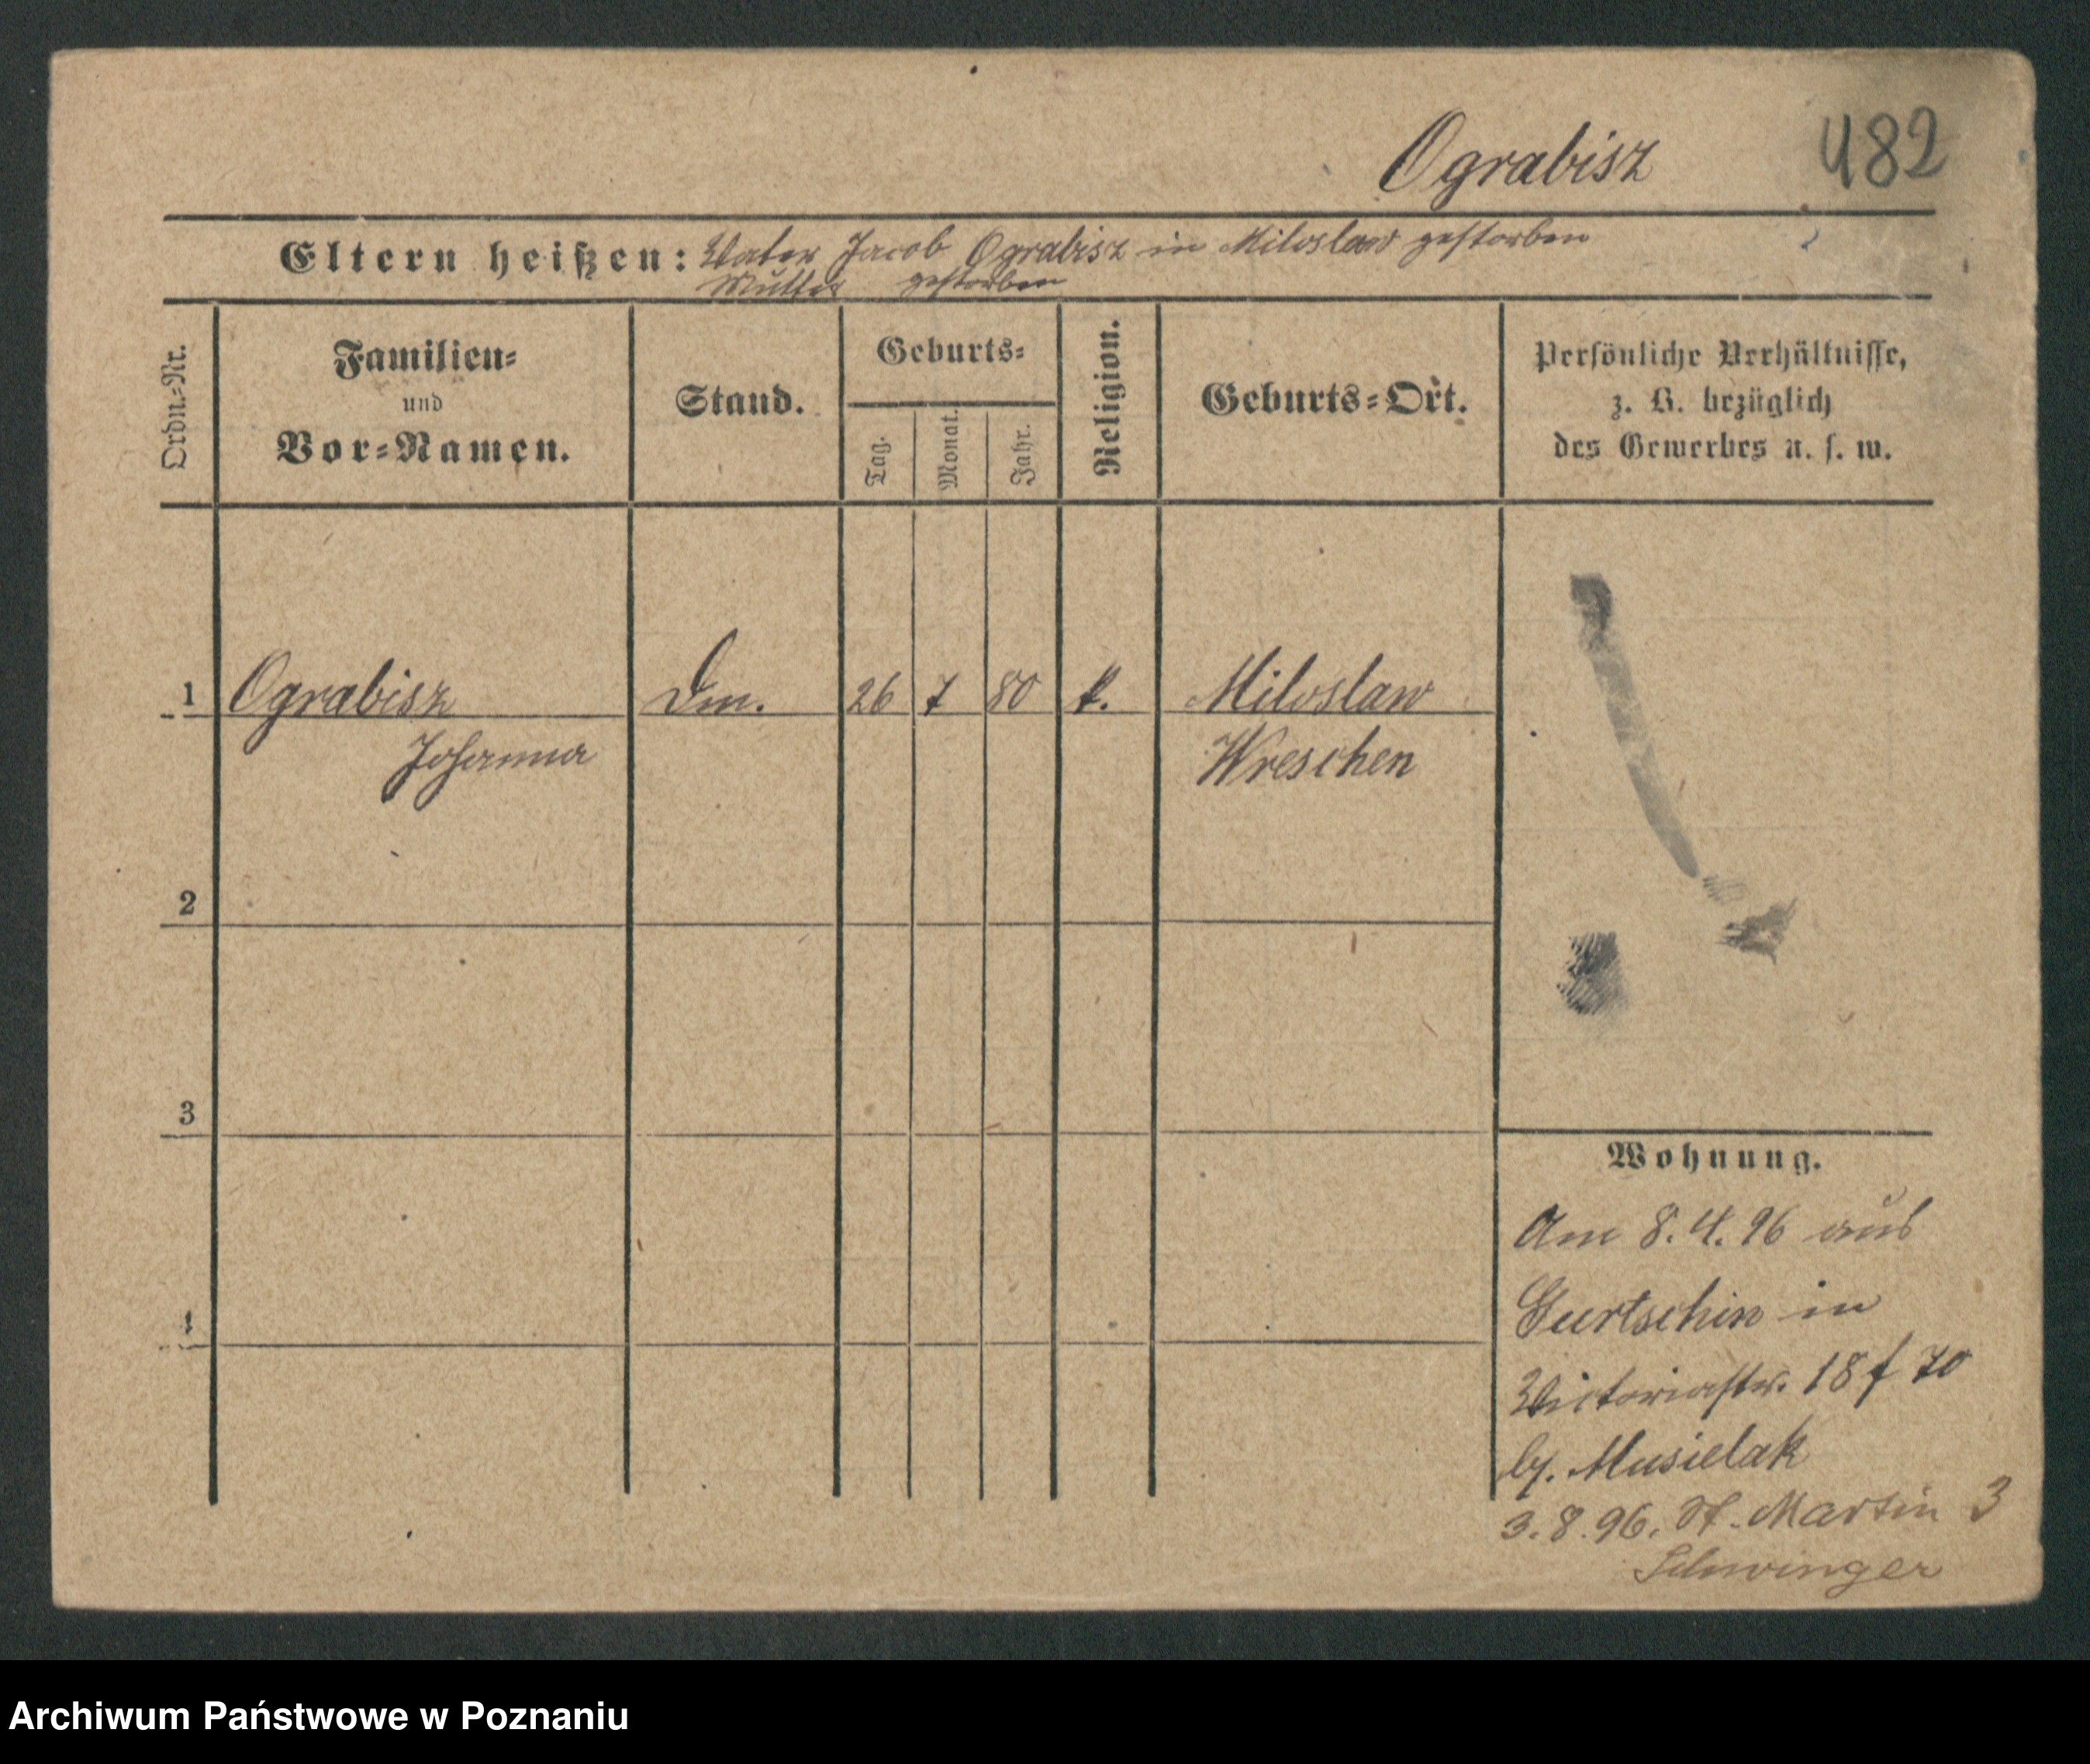 Ograbisz 482
Eltern heißen: Vater Jacob Ograbisz in Miloslaw gestorben
Mutter gestorben
Ordn.-Nr.
Familien-
und
Vor-Namen.
Stand.
Geburts-
Tag.
Monat.
Jahr.
Religion.
Geburts-Ort.
Persönliche Verhältnisse,
z. B. bezüglich
des Gewerbes u. s. w.
1 Ograbisz Dm. 26 7 80 k. Miloslaw
Johanna Wreschen
2
3
4
Wohnung.
Am 8.4.96 aus
Gurtschin in
Victoriastr. 18 f 70
by. Musielak
3.8.96. St. Martin 3
Schwinger
Archiwum Państwowe w Poznaniu